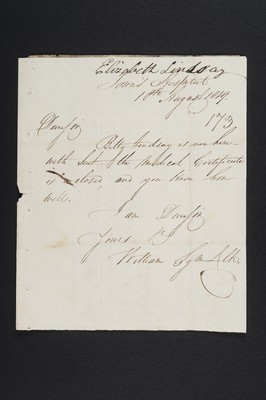 Elizabeth Lindsay
Town's Hospital
10th August 1819.
173
Dear Sir
Betty Lindsay is now here
with sent & the Medical Certificate
is inclosed, and you know
well.
I am Dear Sir
Yours
William Sym